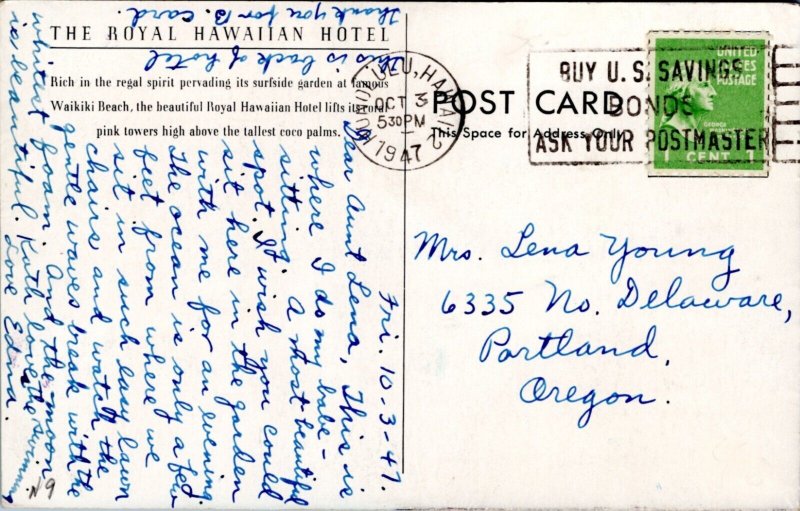 Thank you for B. card.
THE ROYAL HAWAIIAN HOTEL
This is back of hotel
Rich in the regal spirit pervading its surfside garden at famous
Waikiki Beach, the beautiful Royal Hawaiian Hotel lifts its coral
pink towers high above the tallest coco palms.
Fri. 10-3-47.
Dear Aunt Lena, This is
where I do my babe-
sitting. A most beautiful
spot. I wish you could
sit here in the garden
with me for an evening.
The ocean is only a few
feet from where we
sit in such easy lawn
chairs and watch the
gentle waves break with the
whitest foam. And the moon
is beautiful. Ruth loves the swimming
Love Edna.
N9
HONOLULU, HAWAII 2
OCT 3
530 PM
1947
POST CARD
This Space for Address Only
BUY U.S. SAVINGS
BONDS
ASK YOUR POSTMASTER
UNITED
STATES
POSTAGE
GEORGE
1 CENT 1
Mrs. Lena Young
6335 No. Delaware,
Portland,
Oregon.